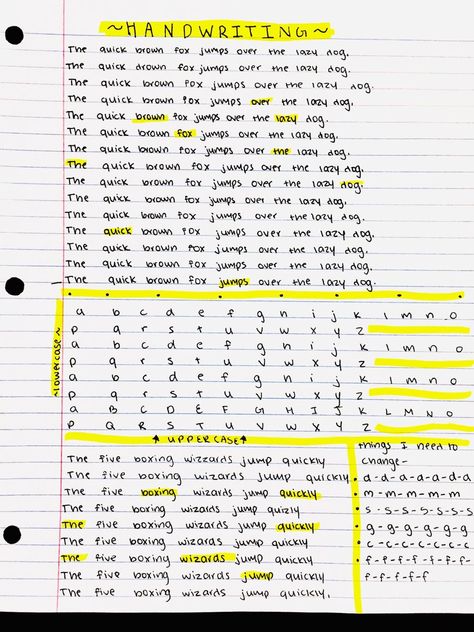 ~HANDWRITING~
The quick brown fox jumps over the lazy dog.
The quick drown fox jumps over the lazy dog.
The quick brown fox jumps over the lazy dog.
The quick brown fox jumps over the lazy dog.
The quick brown fox jumps over the lazy dog.
The quick brown fox jumps over the lazy dog.
The quick brown fox jumps over the lazy dog.
The quick brown fox jumps over the lazy dog.
The quick brown fox jumps over the lazy dog.
The quick brown fox jumps over the lazy dog.
The quick brown fox jumps over the lazy dog.
The quick brown fox jumps over the lazy dog.
The quick brown fox jumps over the lazy dog.
The quick brown fox jumps over the lazy dog.
The quick brown fox jumps over the lazy dog.
~lowercase~
a b c d e f g h i j k l m n o
p q r s t u v w x y z
a b c d e f g h i j k l m n o
p q r s t u v w x y z
a b c d e f g h i j k l m n o
p q r s t u v w x y z
a B C D E F G H I J K L M N O
P Q R S T U V W X Y Z
↑ UPPERCASE ↑
The five boxing wizzards jump quickly
The five boxing wizzards jump quickly.
The five boxing wizards jump quickly
The five boxing wizards jump quizly
The five boxing wizards jump quickly
The five boxing wizards jump quickly
The five boxing wizards jump quickly
The five boxing wizards jump quickly
The five boxing wizards jump quickly.
things I need to
change-
a-d-a-a-d-a
m-m-m-m-m
s-s-s-s-s-s-s
g-g-g-g-g-g
c-c-c-c-c-c-c
f-f-f-f-f-f-f
f-f-f-f-f